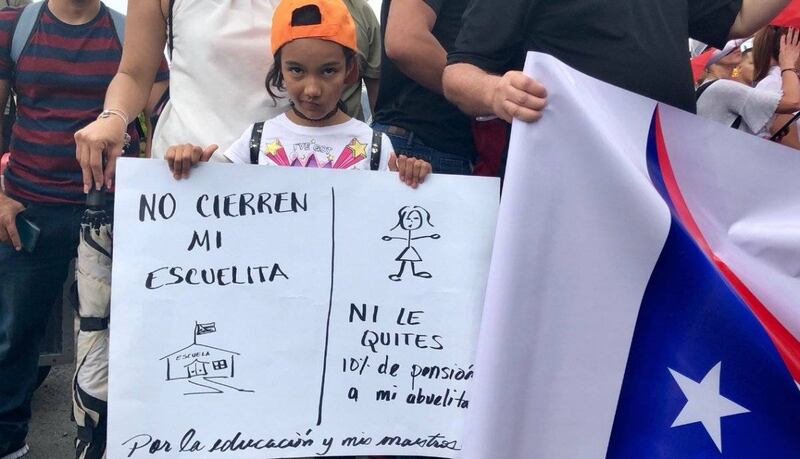 I'VE GOT
NO CIERREN
MI
ESCUELITA
ESCUELA
NI LE
QUITES
10% de pensión
a mi abuelita
Por la educación y mis maestros